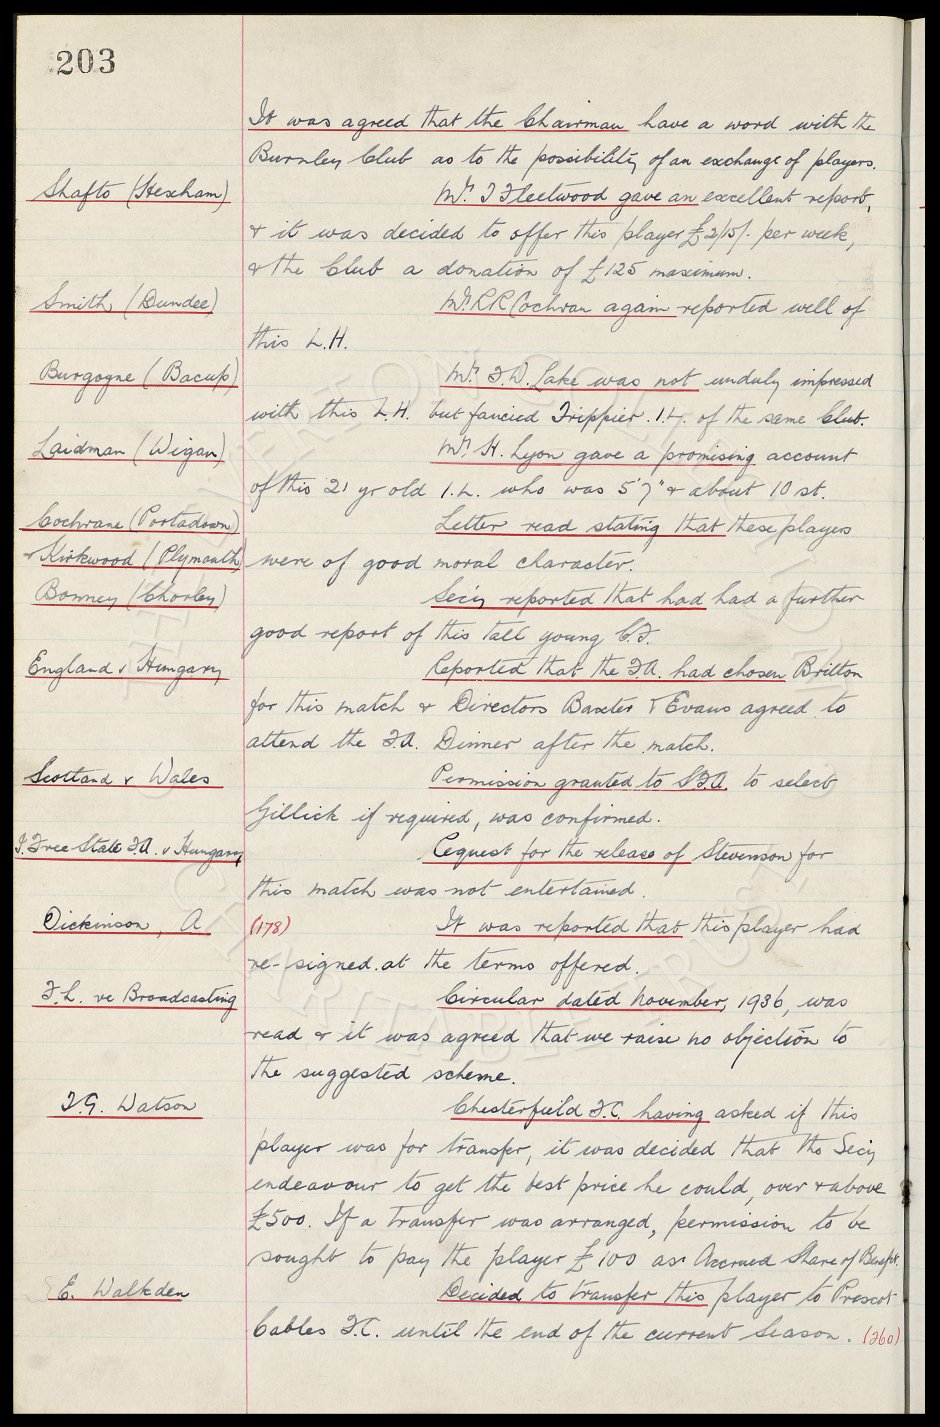 203
It was agreed that the Chairman have a word with the
Burnley Club as to the possibility of an exchange of players.
Shafto (Hexham) Mr. J Fleetwood gave an excellent report,
& it was decided to offer this player £2/15/- per week,
& the Club a donation of £125 maximum.
Smith (Dundee) Mr. R.R. Cochran again reported well of
this L.H.
Burgoyne (Bacup) Mr. F.W. Lake was not unduly impressed
with this L.H. but fancied Trippier. I.L. of the same Club.
Laidman (Wigan) Mr. H. Lyon gave a promising account
of this 21 yr old I.L. who was 5'7" & about 10 st.
Cochrane (Portadown) Letter read stating that these players
& Kirkwood (Plymouth) were of good moral character.
Bonney (Chorley) Secy reported that had had a further
good report of this tall young C.F.
England v Hungary Reported that the F.A. had chosen Britton
for this match & Directors Baxter & Evans agreed to
attend the F.A. Dinner after the match.
Scotland v Wales Permission granted to S.F.A. to select
Gillick if required, was confirmed.
I. Free State F.A. v Hungary Request for the release of Stevenson for
this match was not entertained.
Dickinson, A (178) It was reported that this player had
re-signed at the terms offered.
F.L. re Broadcasting Circular dated November, 1936, was
read & it was agreed that we raise no objection to
the suggested scheme.
T.G. Watson Chesterfield F.C. having asked if this
player was for transfer, it was decided that the Secy
endeavour to get the best price he could, over & above
£500. If a transfer was arranged, permission to be
sought to pay the player £100 as Accrued Share of Benefit.
E. Walkden Decided to transfer this player to Prescot
Cables F.C. until the end of the current Season. (260)